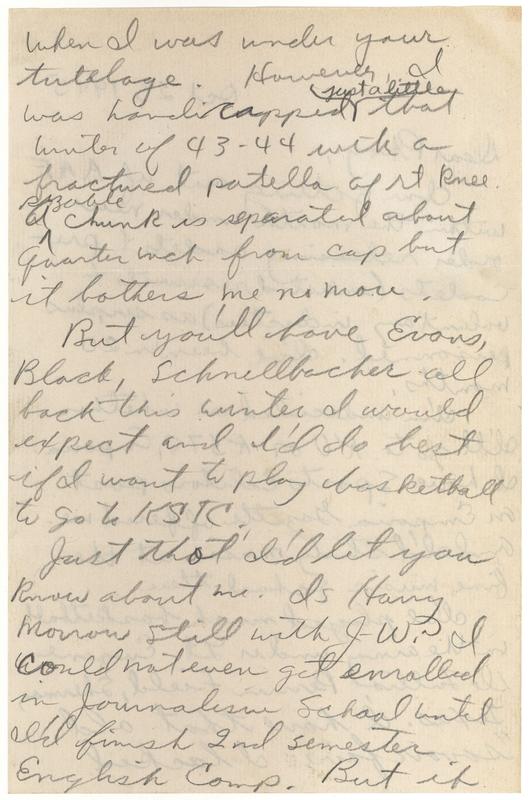 when I was under your
tutelage. However, I
was handicapped just a little that
winter of 43-44 with a
fractured patella of rt knee.
A sizable chunk is separated about
quarter inch from cap but
it bothers me no more.
But you'll have Evans,
Black, Schnellbacher all
back this winter I would
expect and I'd do best
if I want to play basketball
to go to KSTC.
Just thot I'd let you
know about me. Is Harry
Morrow still with J-W? I
could not even get enrolled
in Journalism School until
I'd finish 2nd semester
English Comp. But if